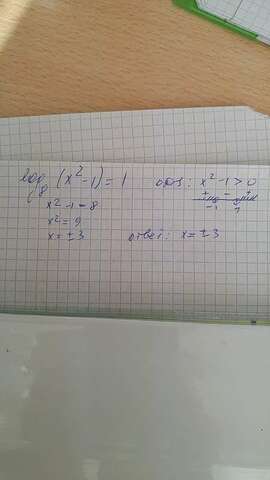 log₈ (x² - 1) = 1   одз: x² - 1 > 0
x² - 1 = 8   + - +
x² = 9   -1 1
x = ± 3   ответ: x = ± 3